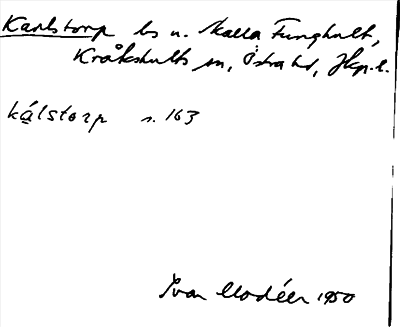 Karlstorp bs u. Skalla Funghult,
Kråkshults sn, Östra hd, Jkp.l.
kálstorp s. 163
Ivar Modéer 1950